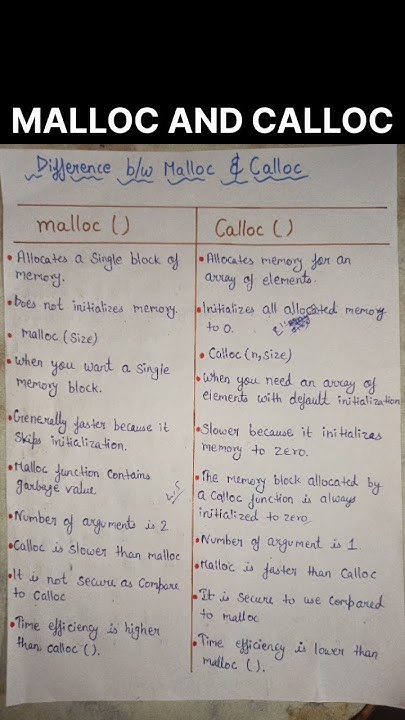 MALLOC AND CALLOC
Difference b/w Malloc & Calloc
malloc ()
• Allocates a Single block of
memory.
• Does not initializes memory.
• malloc (Size)
• When you want a Single
memory block.
• Generally faster because it
Skips initialization.
• Malloc function contains
garbage value
• Number of arguments is 2
• Calloc is slower than malloc
• It is not secure as Compare
to Calloc
• Time efficiency is higher
than calloc ().
Calloc ()
• Allocates memory for an
array of elements.
• Initializes all allocated memory
to 0.
• Calloc (n, size)
• When you need an array of
elements with default initialization
• Slower because it initializes
memory to zero.
• The memory block allocated by
a calloc function is always
initialized to zero
• Number of argument is 1.
• Malloc is faster than Calloc
• It is secure to use compared
to malloc
• Time efficiency is lower than
malloc ().